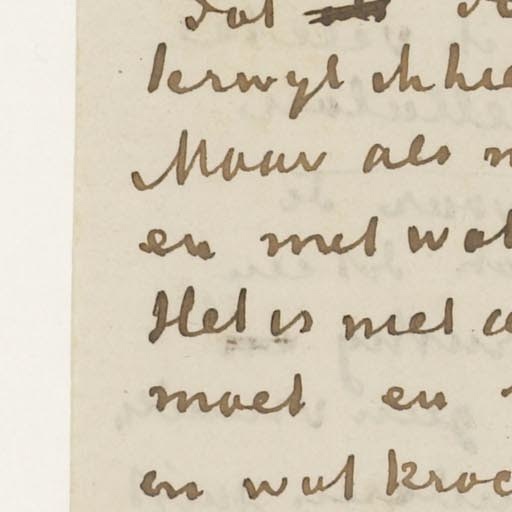 dat
terwyl ik hie
Maar als
en met wat
Het is met
moet en
en wat kroe